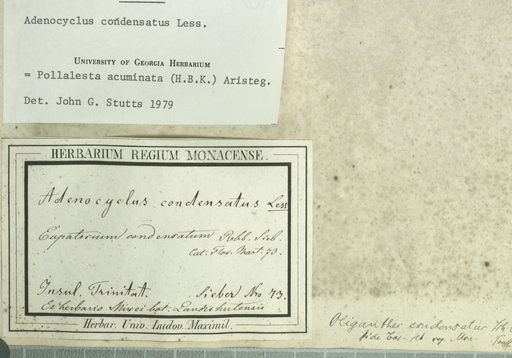 Adenocyclus condensatus Less.
UNIVERSITY OF GEORGIA HERBARIUM
= Pollalesta acuminata (H.B.K.) Aristeg.
Det. John G. Stutts 1979
HERBARIUM REGIUM MONACENSE.
Adenocyclus condensatus Less
Eupatorium condensatum Sieb.
Cat. Flor. Mart. 73.
Insul. Trinitat. Sieber No 73.
Ex herbario Musei bot. Landishutensis
Herbar. Univ. Ludov. Maximil.
Oliganthes condensatus
fide